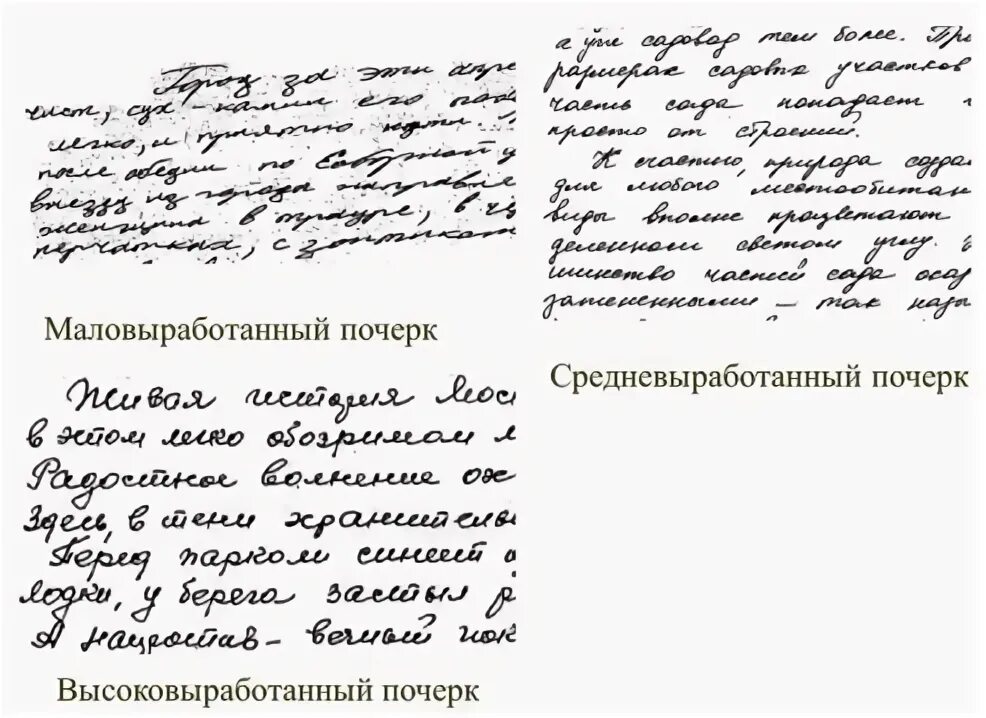 Город за эти
чист, сух - камни его
легко, и приятно идти.
после обедни по Соборной
выезду из города направля
женщина в трауре, в
перчатках, с зонтиком
Маловыработанный почерк
Живая история Мос
в этом легко обозримом
Радостное волнение ож
Здесь, в тени хранительн
Перед парком синеет
лодки, у берега застыл
А напротив - вечный пок
Высоковыработанный почерк
а уж садовод тем более. При
размерах садовых участков
часть сада попадает
просто от строений.
К счастью, природа созда
для любого местообитан
виды вполне процветают
деленном светом углу.
шинство частей сада оказ
затененными - так назы
Средневыработанный почерк